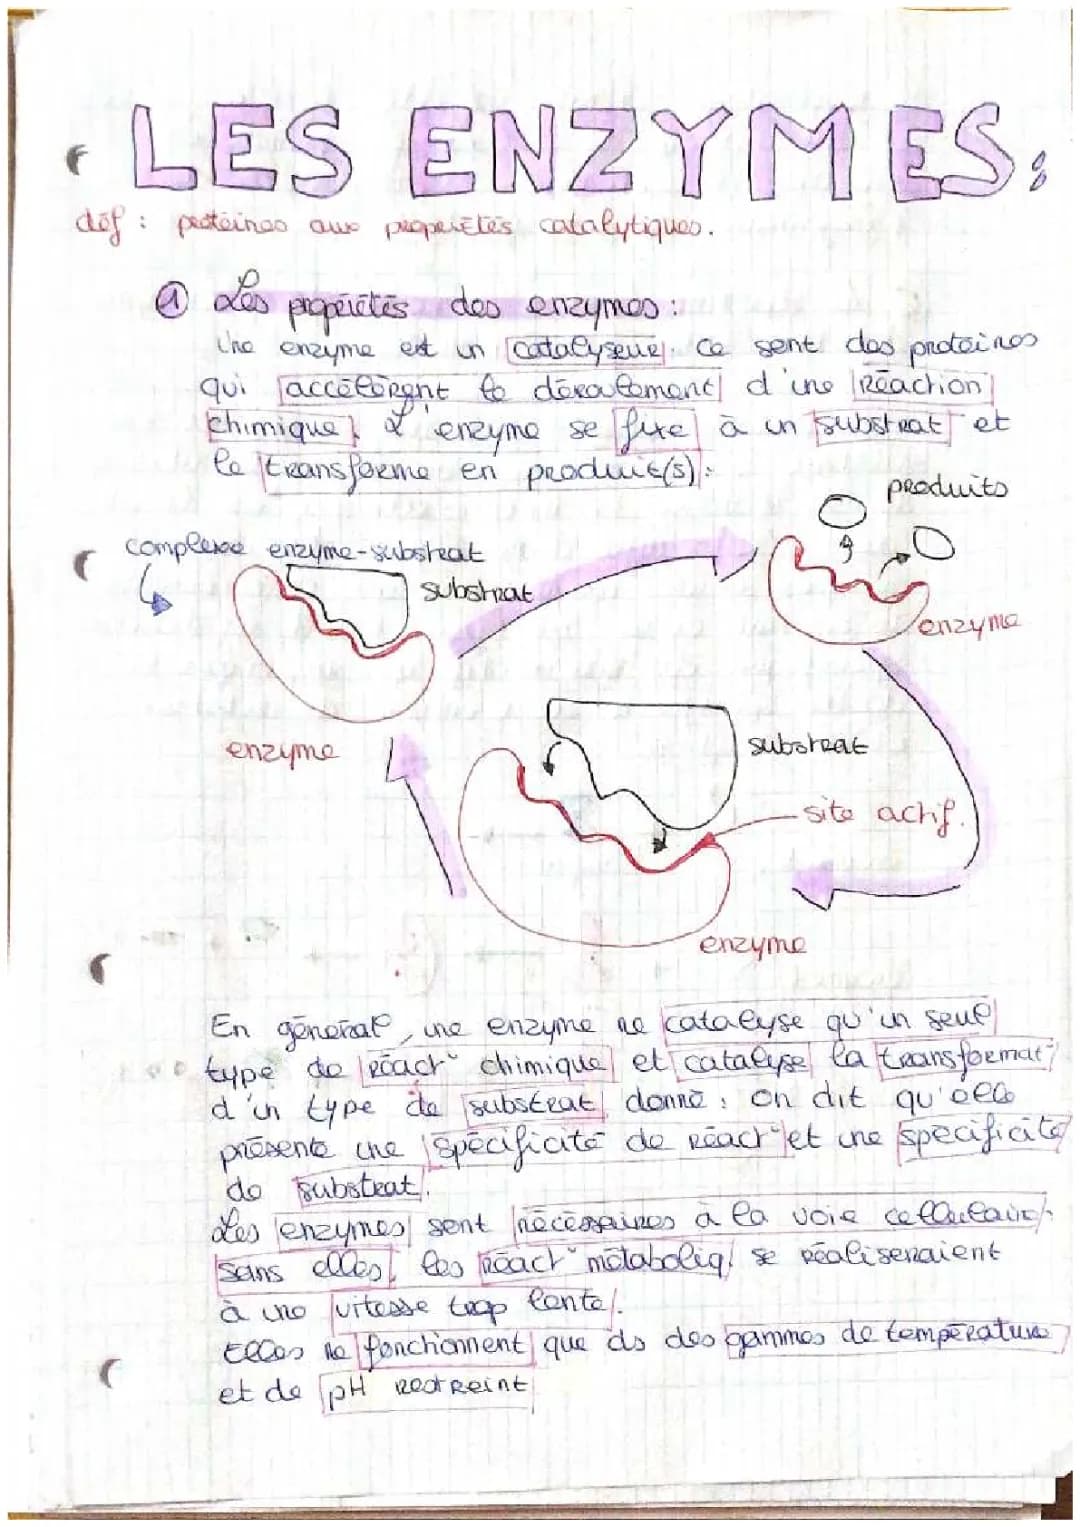 LES ENZYMES:
déf : protéines aux propriétés catalytiques.
① Les propriétés des enzymes :
Une enzyme est un catalyseur. Ce sont des protéines
qui accélèrent le déroulement d'une Réaction
chimique. L'enzyme se fixe à un substrat et
le transforme en produit(s) :
produits
complexe enzyme-substrat
substrat
enzyme
enzyme
substrat
site actif.
enzyme
En général, une enzyme ne catalyse qu'un seul
type de Réact° chimique et catalyse la transformat°
d'un type de substrat donné : on dit qu'elle
présente une spécificité de Réact° et une spécificité
de substrat.
Les enzymes sont nécéssaires à la voie cellulaire,
sans elles, les Réact° métaboliq/ se Réaliseraient
à une vitesse trop lente.
Elles ne fonctionnent que ds des gammes de température
et de pH Restreint